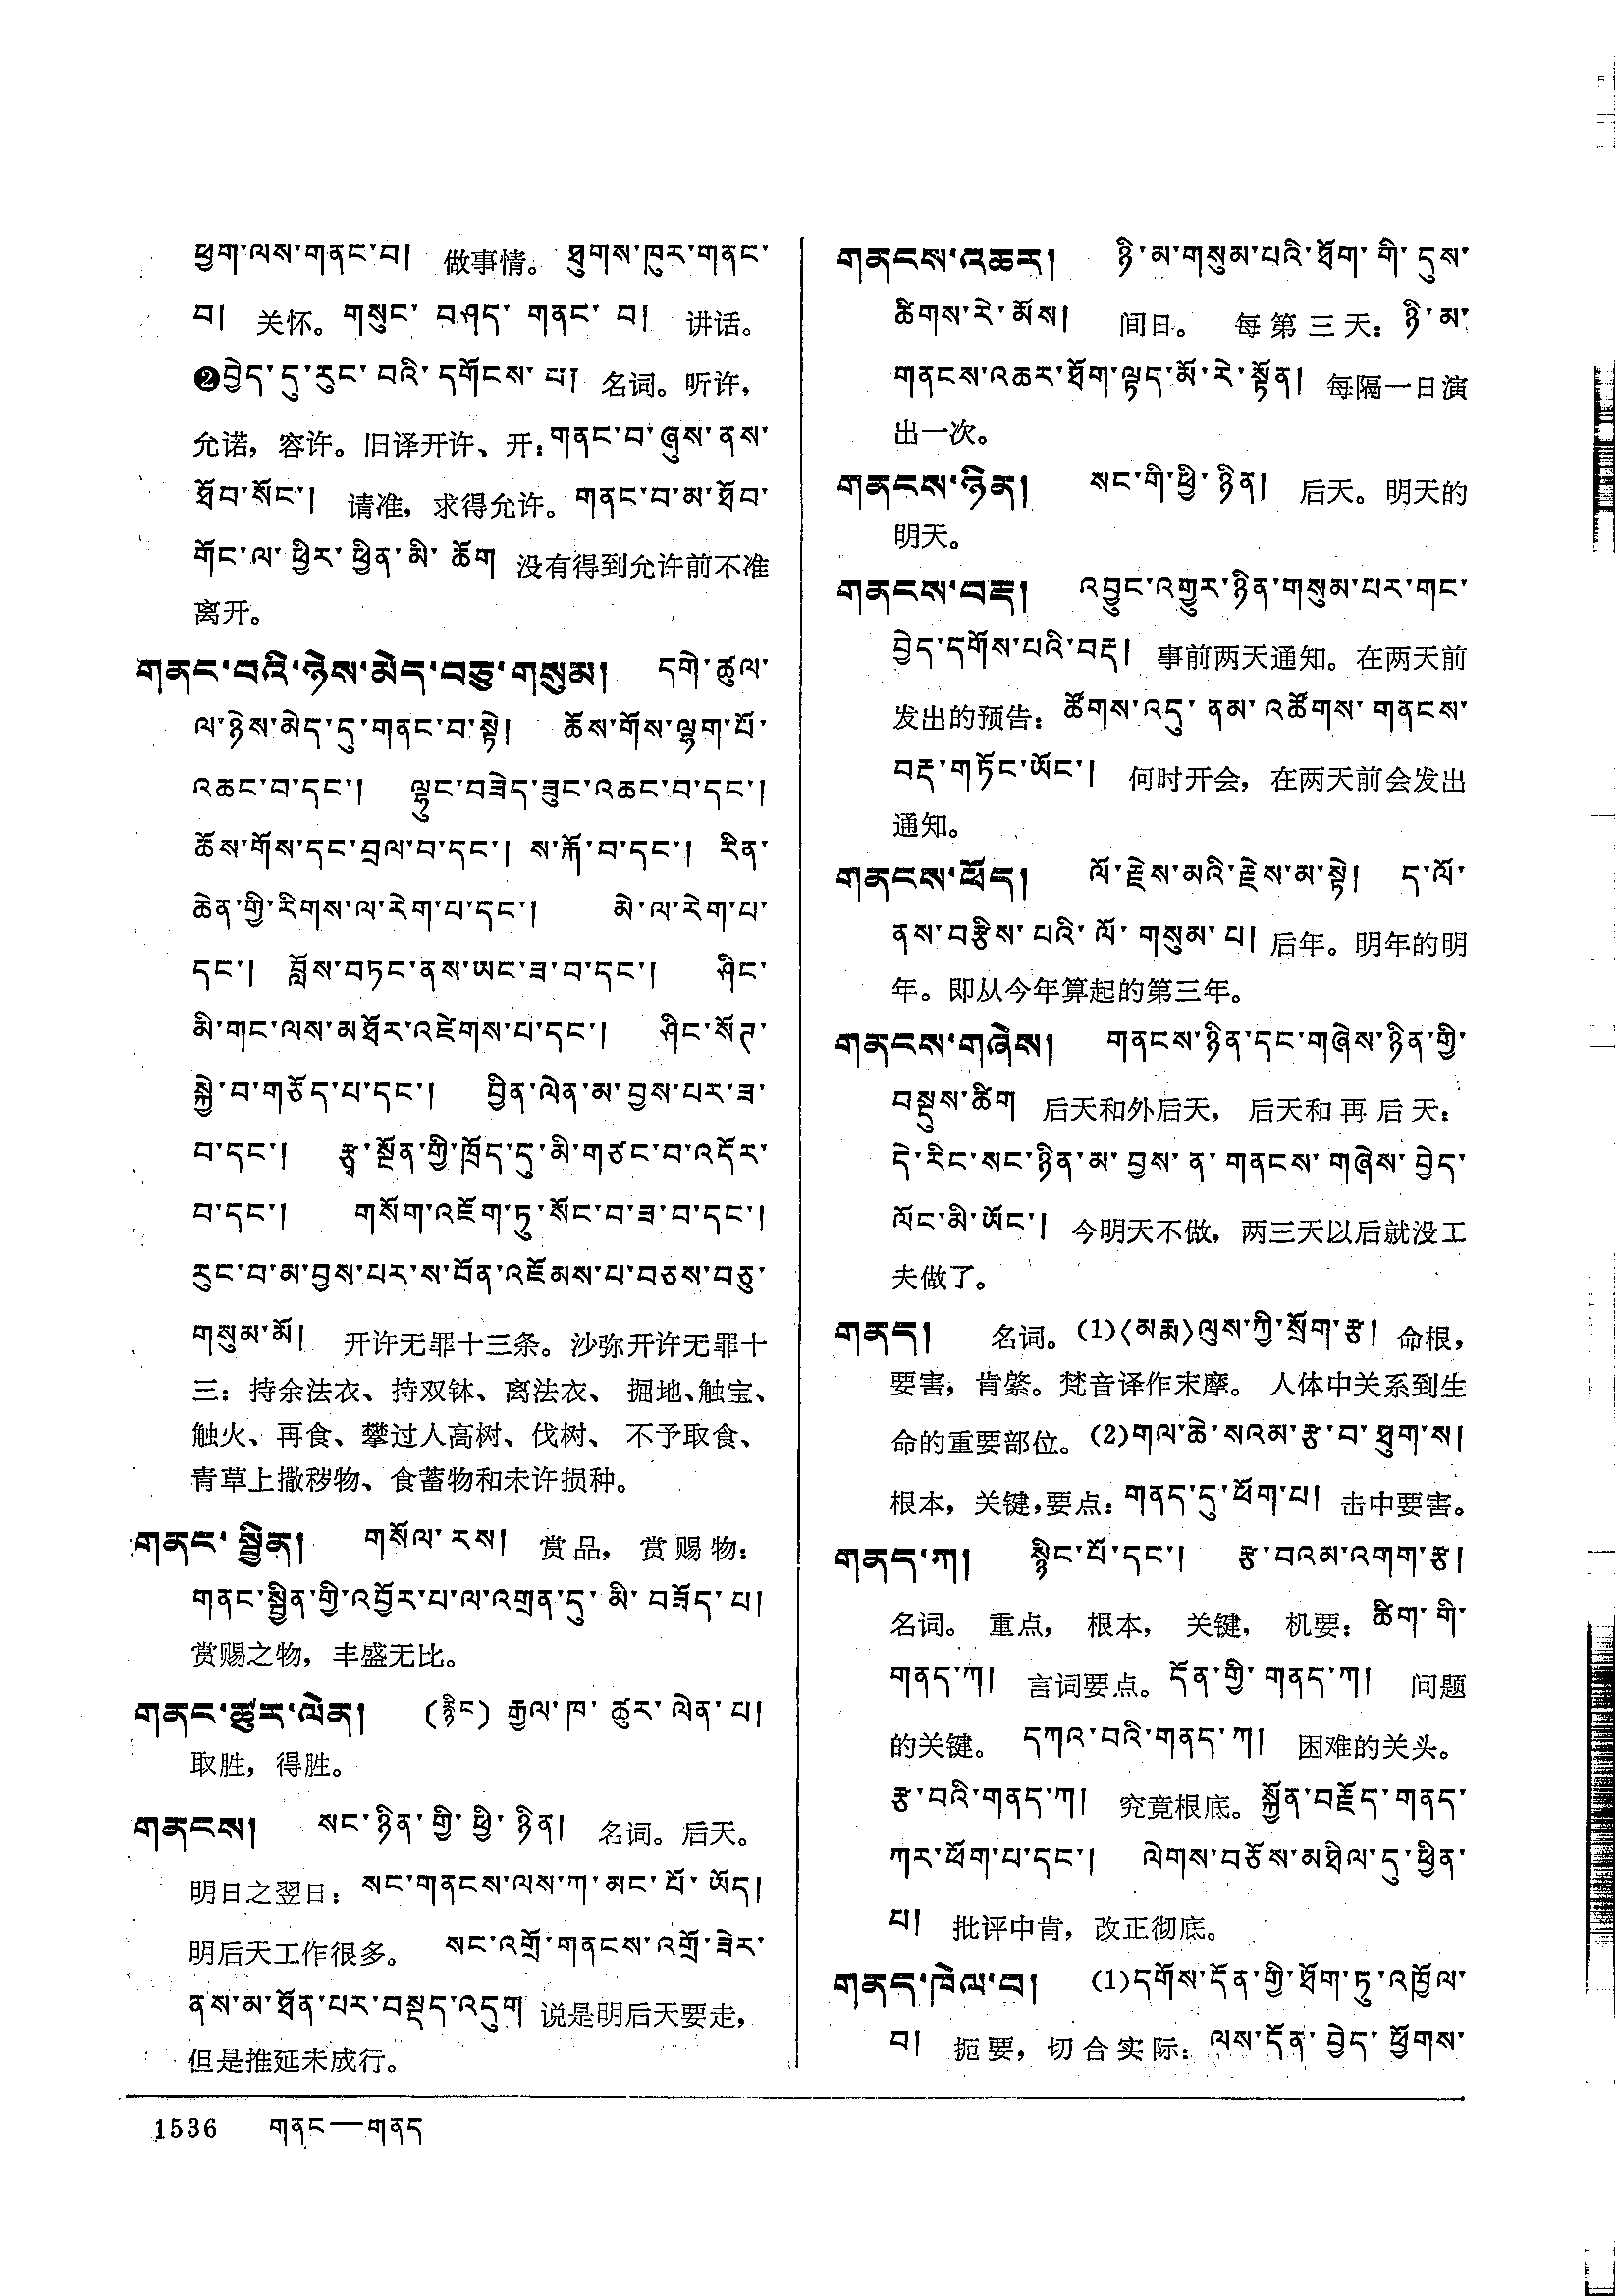 ཕྱག་ལས་གནང་བ། 做事情。 ཐུགས་ཁུར་གནང་
བ། 关怀。 གསུང་བཤད་གནང་བ། 讲话。
❷བྱེད་དུ་རུང་བའི་དགོངས་པ། 名词。听许，
允诺，容许。旧译开许、开：གནང་བ་ཞུས་ནས་
ཐོབ་སོང་། 请准，求得允许。གནང་བ་མ་ཐོབ་
གོང་ལ་ཕྱིར་ཕྱིན་མི་ཆོག 没有得到允许前不准
离开。
གནང་བའི་ཉེས་མེད་བཅུ་གསུམ། དགེ་ཚུལ་
ལ་ཉེས་མེད་དུ་གནང་བ་སྟེ། ཆོས་གོས་ལྷག་པོ་
འཆང་བ་དང་། ལྷུང་བཟེད་ཟུང་འཆང་བ་དང་།
ཆོས་གོས་དང་བྲལ་བ་དང་། ས་རྐོ་བ་དང་། རིན་
ཆེན་གྱི་རིགས་ལ་རེག་པ་དང་། མེ་ལ་རེག་པ་
དང་། བློས་བཏང་ནས་ཡང་ཟ་བ་དང་། ཤིང་
མི་གང་ལས་མཐོར་འཛེགས་པ་དང་། ཤིང་སོཊ་
སྐྱེ་བ་གཅོད་པ་དང་། བྱིན་ལེན་མ་བྱས་པར་ཟ་
བ་དང་། རྩྭ་སྔོན་གྱི་ཁྲོད་དུ་མི་གཙང་བ་འདོར་
བ་དང་། གསོག་འཇོག་ཏུ་སོང་བ་ཟ་བ་དང་།
རུང་བ་མ་བྱས་པར་ས་བོན་འཇོམས་པ་བཅས་བཅུ་
གསུམ་མོ། 开许无罪十三条。沙弥开许无罪十
三：持余法衣、持双钵、离法衣、掘地、触宝、
触火、再食、攀过人高树、伐树、不予取食、
青草上撒秽物、食蓄物和未许损种。
གནང་སྦྱིན། གསོལ་རས། 赏品，赏赐物：
གནང་སྦྱིན་གྱི་འབྱོར་པ་ལ་འགྲན་དུ་མི་བཟོད་པ།
赏赐之物，丰盛无比。
གནང་ཚུར་ལེན། (རྙིང) རྒྱལ་ཁ་ཚུར་ལེན་པ།
取胜，得胜。
གནངས། སང་ཉིན་གྱི་ཕྱི་ཉིན། 名词。后天。
明日之翌日：སང་གནངས་ལས་ཀ་མང་པོ་ཡོད།
明后天工作很多。 སང་འགྲོ་གནངས་འགྲོ་ཟེར་
ནས་མ་ཐོན་པར་བསྡད་འདུག 说是明后天要走，
但是推延未成行。
གནངས་འཆར། ཉི་མ་གསུམ་པའི་ཐོག་གི་དུས་
ཚིགས་རེ་མོས། 间日。 每第三天：ཉི་མ་
གནངས་འཆར་ཐོག་ལྟད་མོ་རེ་སྟོན། 每隔一日演
出一次。
གནངས་ཉིན། སང་གི་ཕྱི་ཉིན། 后天。明天的
明天。
གནངས་བརྡ། འབྱུང་འགྱུར་ཉིན་གསུམ་པར་གང་
བྱེད་དགོས་པའི་བརྡ། 事前两天通知。在两天前
发出的预告：ཚོགས་འདུ་ནམ་འཚོགས་གནངས་
བརྡ་གཏོང་ཡོང་། 何时开会，在两天前会发出
通知。
གནངས་ཕོད། ལོ་རྗེས་མའི་རྗེས་མ་སྟེ། ད་ལོ་
ནས་བརྩིས་པའི་ལོ་གསུམ་པ། 后年。明年的明
年。即从今年算起的第三年。
གནངས་གཞེས། གནངས་ཉིན་དང་གཞེས་ཉིན་གྱི་
བསྡུས་ཚིག 后天和外后天，后天和再后天：
དེ་རིང་སང་ཉིན་མ་བྱས་ན་གནངས་གཞེས་བྱེད་
ལོང་མི་ཡོང་། 今明天不做，两三天以后就没工
夫做了。
གནད། 名词。(1)〈མརྨ〉ལུས་ཀྱི་སྲོག་རྩ། 命根，
要害，肯綮。梵音译作末摩。人体中关系到生
命的重要部位。(2)གལ་ཆེ་སའམ་རྩ་བ་ཐུག་ས།
根本，关键，要点：གནད་དུ་ཕོག་པ། 击中要害。
གནད་ཀ། སྙིང་པོ་དང་། རྩ་བའམ་འགག་རྩ།
名词。重点，根本，关键，机要：ཚིག་གི་
གནད་ཀ། 言词要点。དོན་གྱི་གནད་ཀ། 问题
的关键。 དཀའ་བའི་གནད་ཀ། 困难的关头。
རྩ་བའི་གནད་ཀ། 究竟根底。སྐྱོན་བརྗོད་གནད་
ཀར་ཕོག་པ་དང་། ལེགས་བཅོས་མཐིལ་དུ་ཕྱིན་
པ། 批评中肯，改正彻底。
གནད་ཁེལ་བ། (1)དགོས་དོན་གྱི་ཐོག་ཏུ་འཁྱོལ་
བ། 扼要，切合实际：ལས་དོན་བྱེད་ཕྱོགས་
1536 གནང—གནད